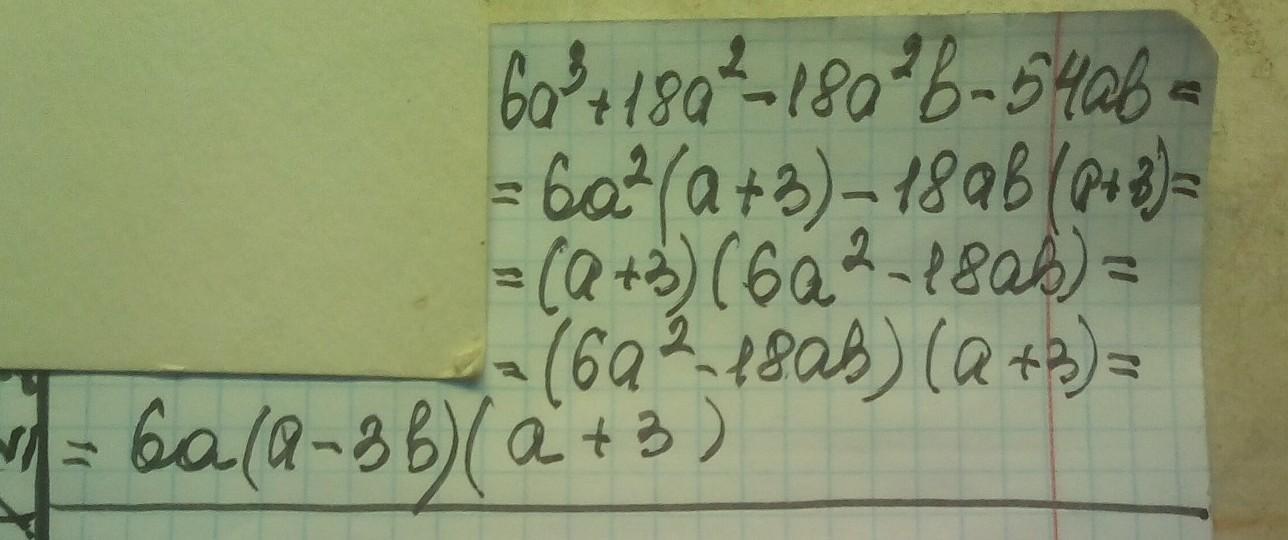 6a³+18a²-18a²b-54ab=
=6a²(a+3)-18ab(a+3)=
=(a+3)(6a²-18ab)=
=(6a²-18ab)(a+3)=
=6a(a-3b)(a+3)